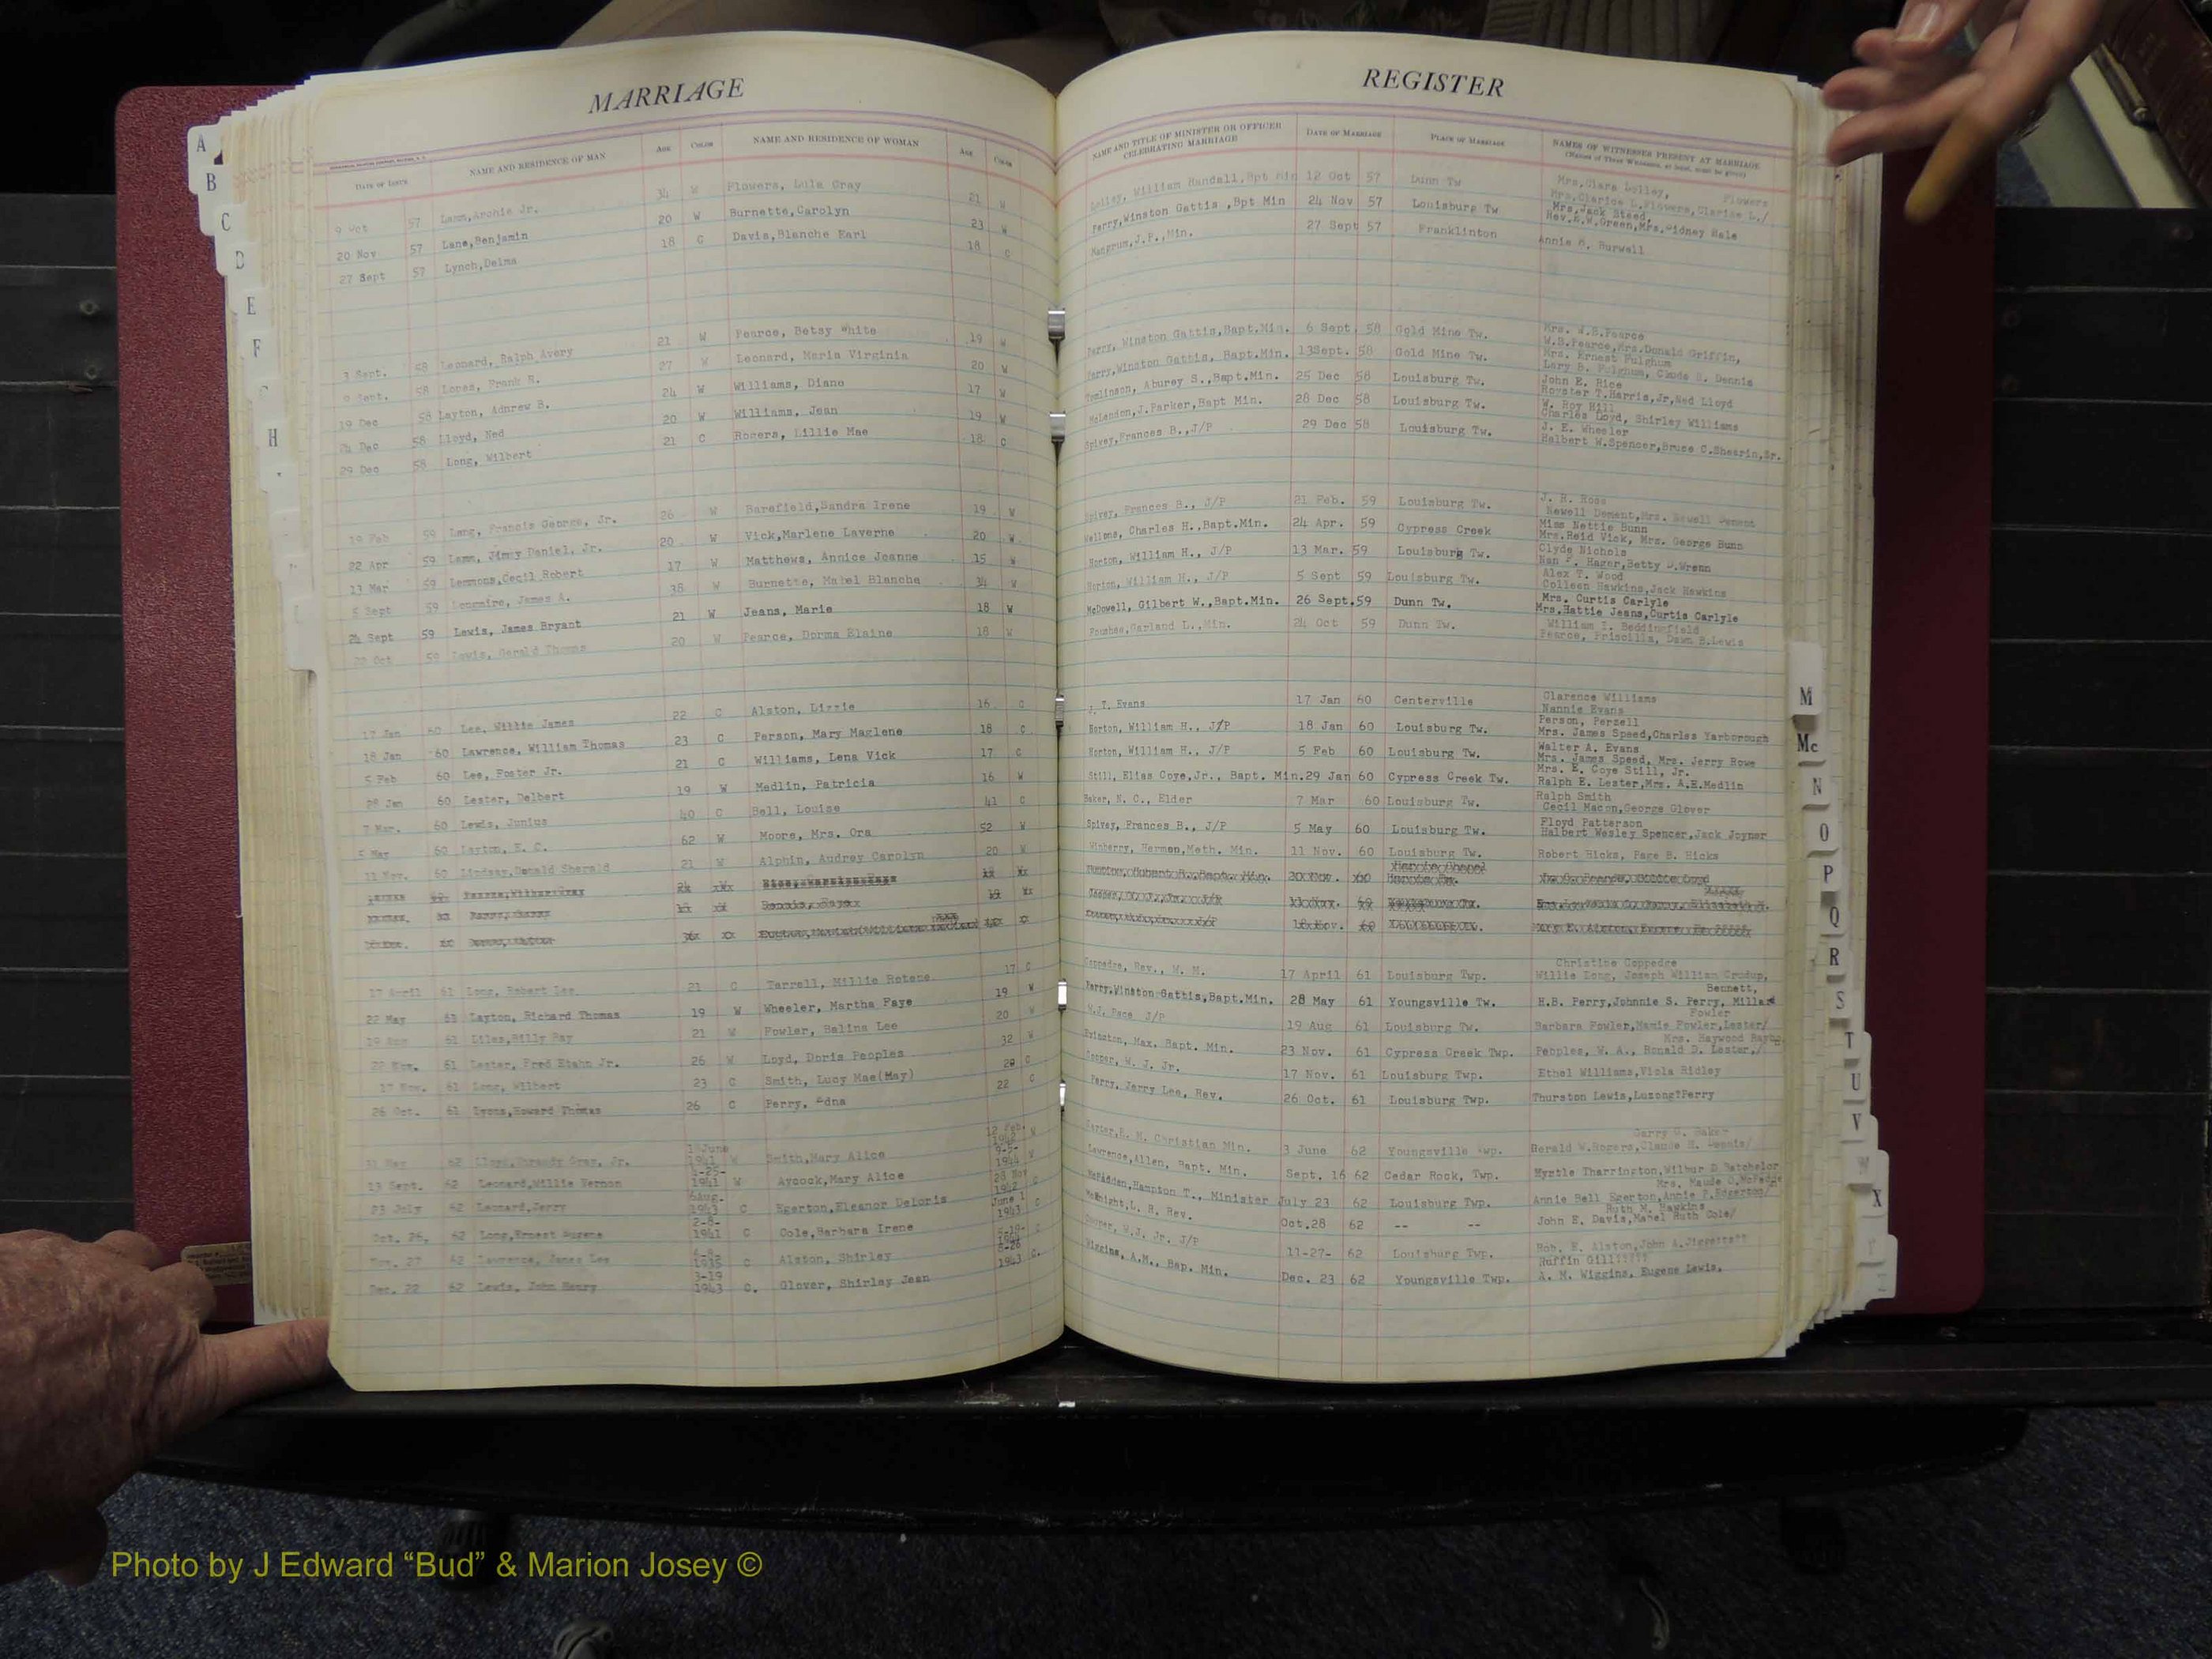 MARRIAGE
REGISTER
DATE OF ISSUE NAME AND RESIDENCE OF MAN AGE COLOR NAME AND RESIDENCE OF WOMAN AGE COLOR
NAME AND TITLE OF MINISTER OR OFFICER CELEBRATING MARRIAGE DATE OF MARRIAGE PLACE OF MARRIAGE NAMES OF WITNESSES PRESENT AT MARRIAGE
9 Oct 57 Lamm,Archie Jr. 34 W Flowers, Lula Gray 21 W Lolley, William Randall,Bpt Min 12 Oct 57 Dunn Tw Mrs.Clara Lolley, Flowers
Mrs.Clarice L.Flowers,Clarice L./
20 Nov 57 Lane,Benjamin 20 W Burnette,Carolyn 23 W Perry,Winston Gattis ,Bpt Min 24 Nov 57 Louisburg Tw Mrs.Jack Steed,
27 Sept 57 Lynch,Delma 18 C Davis,Blanche Earl 18 C Mangrum,J.P.,Min. 27 Sept 57 Franklinton Annie B. Burwell
3 Sept. 58 Leonard, Ralph Avery 21 W Pearce, Betsy White 19 W Perry, Winston Gattis,Bapt.Min. 6 Sept. 58 Gold Mine Tw. Mrs. W.B.Pearce
W.B.Pearce,Mrs.Donald Griffin,
9 Sept. 58 Lopes, Frank R. 27 W Leonard, Maria Virginia 20 W Perry,Winston Gattis, Bapt.Min. 13Sept. 58 Gold Mine Tw. Mrs. Ernest Fulghum
Lary B. Fulghum, Clyde R. Dennis
19 Dec 58 Layton, Adnrew B. 24 W Williams, Diane 17 W Tomlinson, Aburey S.,Bapt.Min. 25 Dec 58 Louisburg Tw. John E. Rice
Royster T.Harris,Jr,Ned Lloyd
24 Dec 58 Lloyd, Ned 20 W Williams, Jean 19 W McLendon,J.Parker,Bapt Min. 28 Dec 58 Louisburg Tw. W. Roy Hill
Charles Loyd, Shirley Williams
29 Dec 58 Long, Wilbert 21 C Rogers, Lillie Mae 18 C Spivey,Frances B.,J/P 29 Dec 58 Louisburg Tw. J. E. Wheeler
Halbert W.Spencer,Bruce C.Shearin,Sr.
19 Feb 59 Lang, Francis George, Jr. 26 W Barefield,Sandra Irene 19 W Spivey, Frances B., J/P 21 Feb. 59 Louisburg Tw. J. R. Ross
Sewell Dement,Mrs. Sewell Dement
22 Apr 59 Lamm, Jimmy Daniel, Jr. 20 W Vick,Marlene Laverne 20 W Wellons, Charles H.,Bapt.Min. 24 Apr. 59 Cypress Creek Miss Nettie Bunn
Mrs.Reid Vick, Mrs. George Bunn
13 Mar 59 Lemmons,Cecil Robert 17 W Matthews, Annice Joanne 15 W Horton, William H., J/P 13 Mar. 59 Louisburg Tw. Clyde Nichols
Nan F. Hager,Betty D.Wrenn
5 Sept 59 Longmire, James A. 38 W Burnette, Mabel Blanche 34 W Horton, William H., J/P 5 Sept 59 Louisburg Tw. Alex T. Wood
Colleen Hawkins,Jack Hawkins
24 Sept 59 Lewis, James Bryant 21 W Jeans, Marie 18 W McDowell, Gilbert W.,Bapt.Min. 26 Sept.59 Dunn Tw. Mrs. Curtis Carlyle
Mrs.Hattie Jeans,Curtis Carlyle
22 Oct 59 Lewis, Gerald Thomas 20 W Pearce, Dorma Elaine 18 W Foushee,Garland L.,Min. 24 Oct 59 Dunn Tw. William I. Beddingfield
Pearce, Priscilla, Dawn B.Lewis
17 Jan 60 Lee, Willie James 22 C Alston, Lizzie 16 C J. T. Evans 17 Jan 60 Centerville Clarence Williams
Nannie Evans
18 Jan 60 Lawrence, William Thomas 23 C Person, Mary Maglene 18 C Horton, William H., J/P 18 Jan 60 Louisburg Tw. Person, Perzell
Mrs. James Speed,Charles Yarborough
5 Feb 60 Lee, Foster Jr. 21 C Williams, Lena Vick 17 C Horton, William H., J/P 5 Feb 60 Louisburg Tw. Walter A. Evans
Mrs. James Speed, Mrs. Jerry Rowe
28 Jan 60 Lester, Delbert 19 W Medlin, Patricia 16 W Still, Elias Coye,Jr., Bapt. Min.29 Jan 60 Cypress Creek Tw. Mrs. E. Coye Still, Jr.
Ralph E. Lester,Mrs. A.E.Medlin
7 Mar. 60 Lewis, Junius 40 C Bell, Louise 41 C Baker, N. C., Elder 7 Mar 60 Louisburg Tw. Ralph Smith
Cecil Macon,George Glover
5 May 60 Layton, E. C. 62 W Moore, Mrs. Ora 52 W Spivey, Frances B., J/P 5 May 60 Louisburg Tw. Floyd Patterson
Halbert Wesley Spencer,Jack Joyner
11 Nov. 60 Lindsay,Donald Sherald 21 W Alphin, Audrey Carolyn 20 W Winberry, Harmon,Meth. Min. 11 Nov. 60 Louisburg Tw. Robert Hicks, Page B. Hicks
17 April 61 Long, Robert Lee 21 C Terrell, Millie Rotene 17 C Coppedge, Rev., W. M. 17 April 61 Louisburg Twp. Christine Coppedge
Willie Long, Joseph William Crudup,
Bennett,
22 May 61 Layton, Richard Thomas 19 W Wheeler, Martha Faye 19 W Perry,Winston Gattis,Bapt.Min. 28 May 61 Youngsville Tw. H.B. Perry,Johnnie S. Perry, Millard
Fowler
19 Aug 61 Liles,Billy Ray 21 W Fowler, Salina Lee 20 W W.J. Pace J/P 19 Aug 61 Louisburg Tw. Barbara Fowler,Mamie Fowler,Lester/
22 Nov. 61 Lester, Fred Etahn Jr. 26 W Loyd, Doris Peoples 32 W Evington, Max. Bapt. Min. 23 Nov. 61 Cypress Creek Twp. Pebples, W. A., Ronald D. Lester,/
17 Nov. 61 Long, Wilbert 23 C Smith, Lucy Mae(May) 20 C Cooper, W. J. Jr. 17 Nov. 61 Louisburg Twp. Ethel Williams,Viola Ridley
26 Oct. 61 Lyons,Howard Thomas 26 C Perry, Edna 22 C Perry, Jerry Lee, Rev. 26 Oct. 61 Louisburg Twp. Thurston Lewis,Luzong?Perry
Garry G. Baker
31 May 62 Jr. 1 June 1941 W Smith,Mary Alice 12 Feb. W Carter,E. M. Christian Min. 3 June 62 Youngsville Twp. Gerald W.Rogers,Claude H. Dennis/
13 Sept. 62 Leonard,Willie Vernon 1941 W Aycock,Mary Alice 1944 W Lawrence,Allen, Bapt. Min. Sept. 16 62 Cedar Rock, Twp. Myrtle Tharrington,Wilbur D Batchelor
23 July 62 Leonard,Jerry 6Aug. 1943 C Egerton,Eleanor Deloris 28 Nov 1942 C McFadden,Hampton T., Minister July 23 62 Louisburg Twp. Annie Bell Egerton,Annie P.Edgerton/
Ruth M. Hawkins
Oct. 26, 62 Long,Ernest Eugene 2-8-1941 C Cole,Barbara Irene June 1 1943 C McKnight,L. R. Rev. Oct.28 62 -- -- John E. Davis,Mabel Ruth Cole/
Nov. 27 62 Lawrence, James Lee 1935 C Alston, Shirley Cooper, W.J. Jr. J/P 11-27- 62 Louisburg Twp. Rob. E. Alston,John A.Jiggetts??
Ruffin Gill?????
Dec. 22 62 Lewis, John Henry 3-19 1943 C. Glover, Shirley Jean 8-26 1943 C. Wiggins, A.M., Bap. Min. Dec. 23 62 Youngsville Twp. A. M. Wiggins, Eugene Lewis.
A
B
C
D
E
F
H
M
Mc
N
O
P
Q
R
S
T
U
V
W
X
Y
Z
Photo by J Edward “Bud” & Marion Josey ©